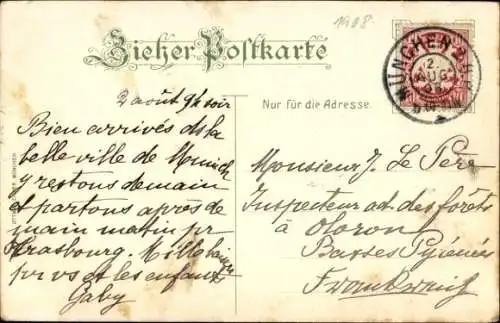 1908
Zieher Postkarte
MÜNCHEN
2.
AUG.
Nur für die Adresse.
2 août 9h soir
Bien arrivés ds la
belle ville de Munich
y restons demain
et partons après de
main matin pr
Strasbourg. Mille baisers
pr vs et les enfants
Gaby
Monsieur J. Le Père
Inspecteur adt. des forêts
à Oloron
Basses Pyrénées
Frankreich